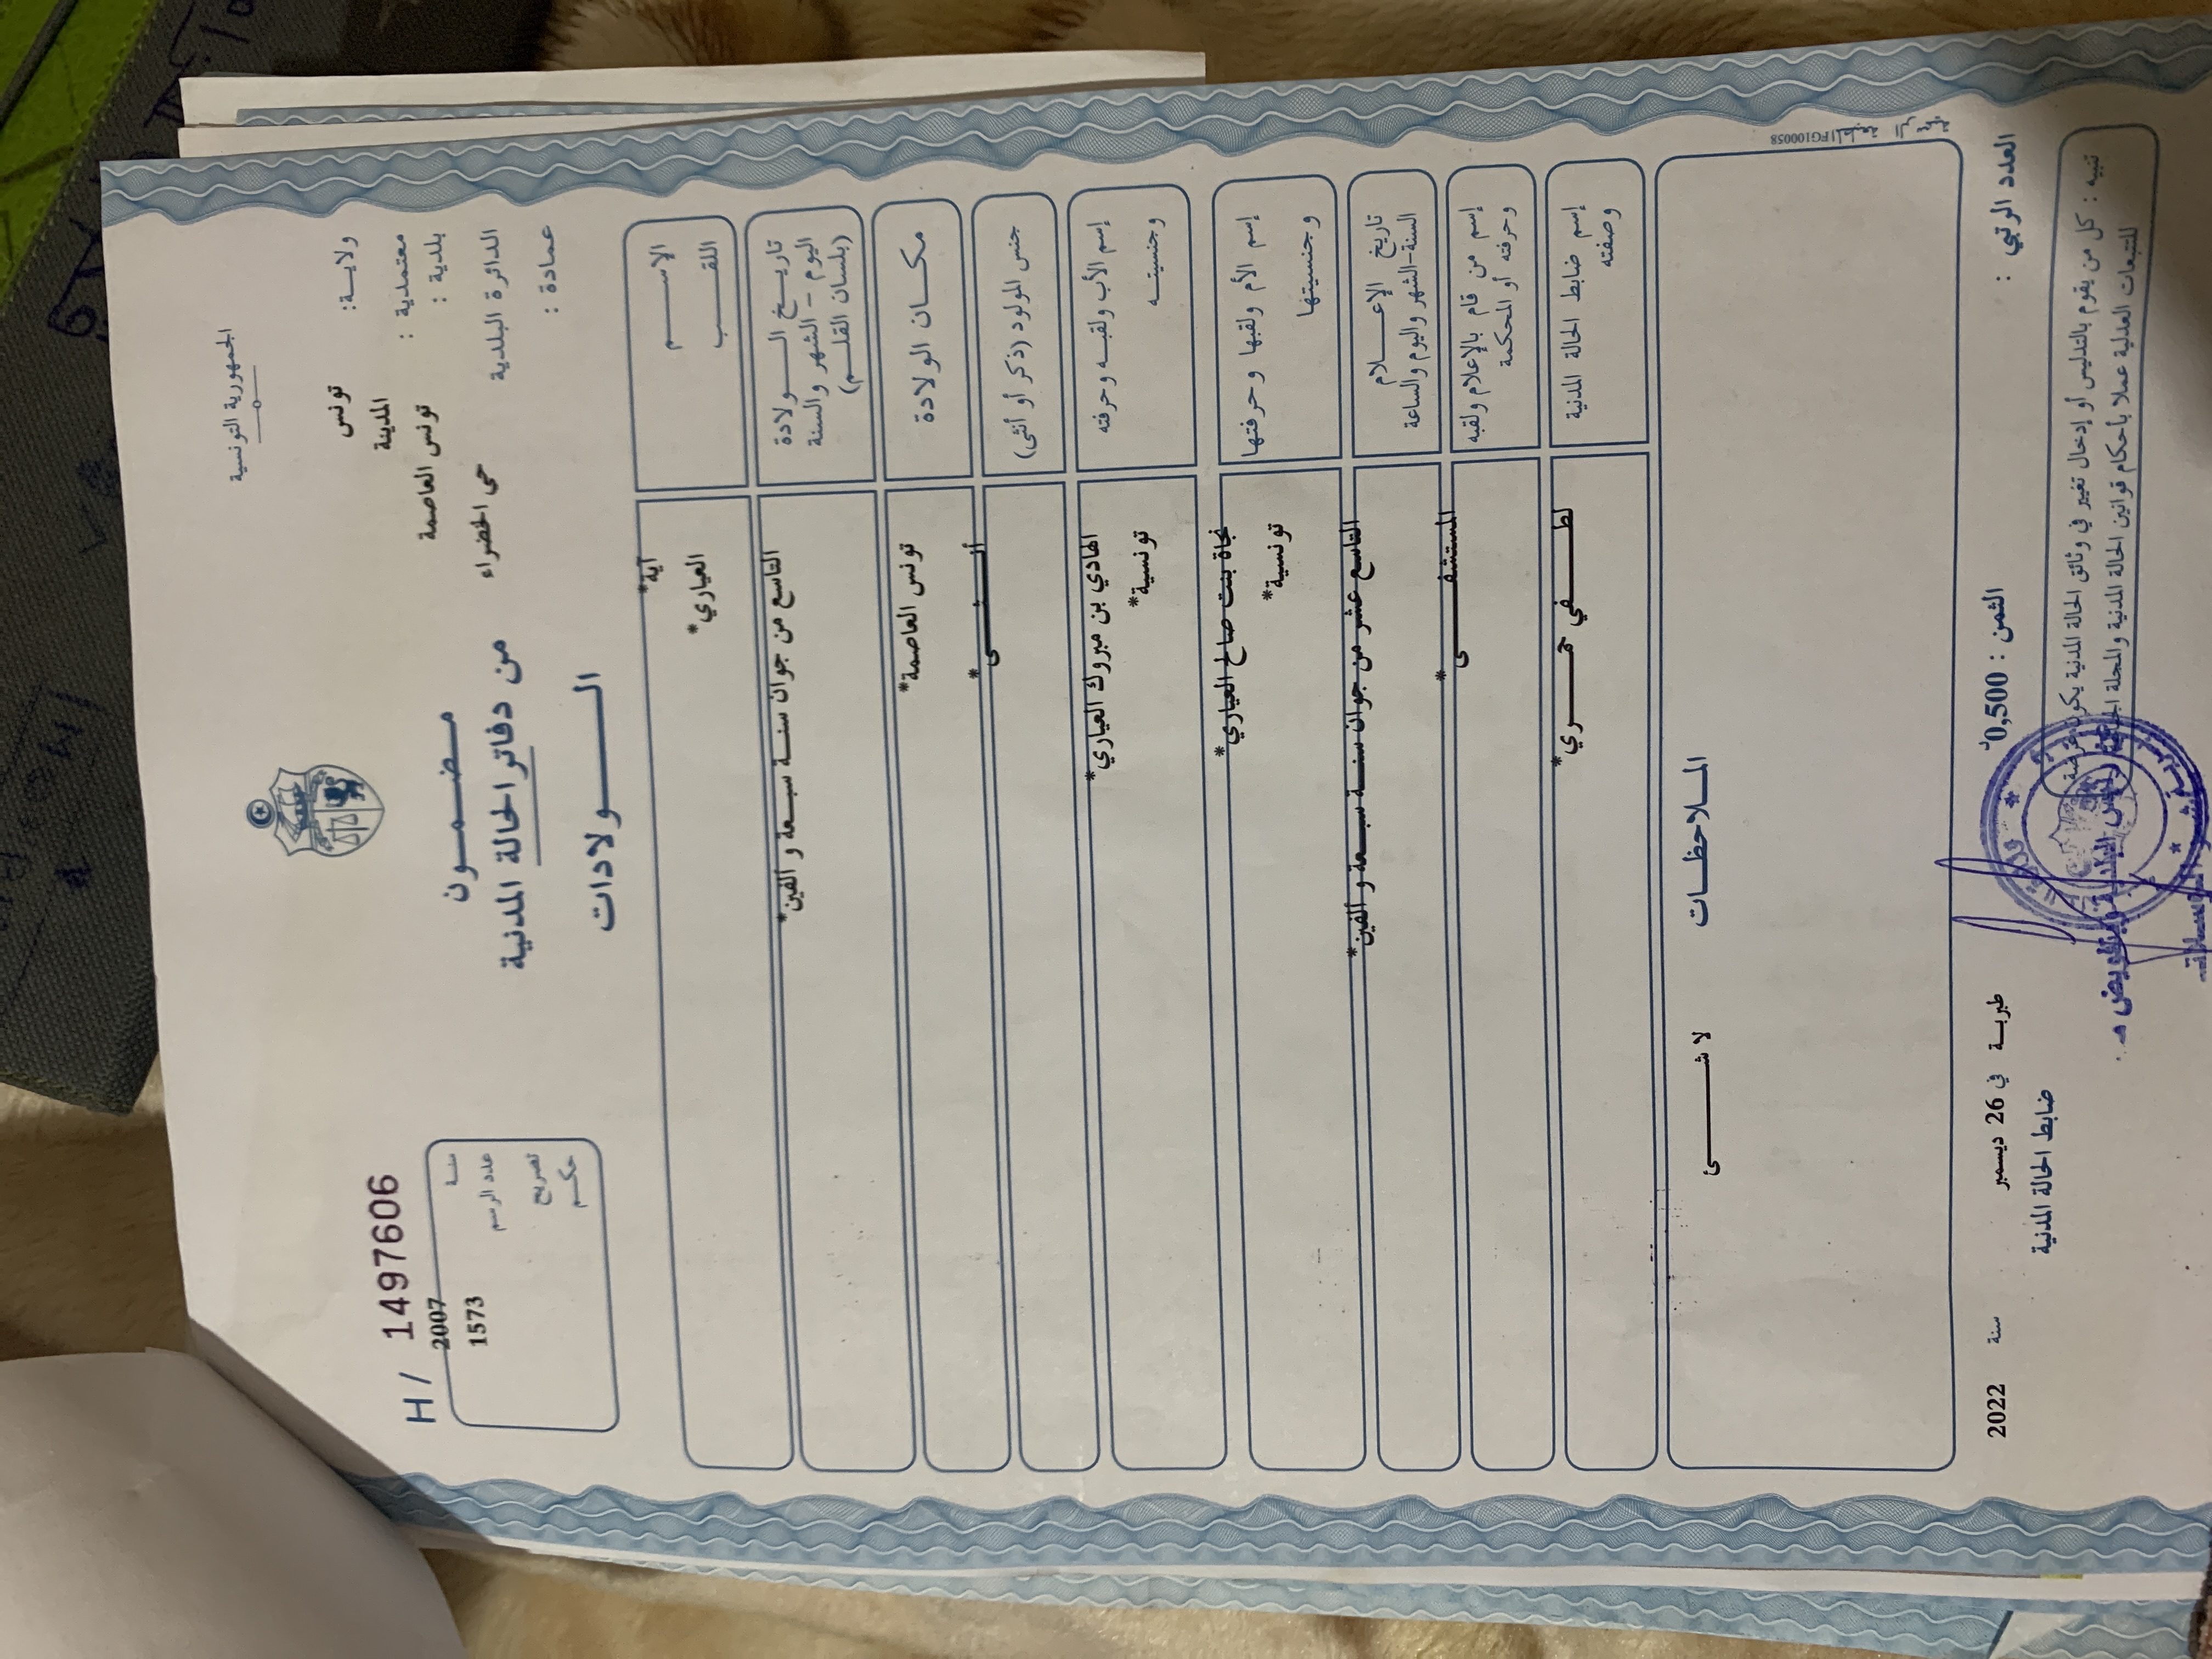 الجمهورية التونسية
ولاية: تونس
معتمدية : المدينة
بلدية : تونس العاصمة
الدائرة البلدية حي الخضراء
عمادة :
H/ 1497606
سنة 2007
عدد الرسم 1573
تصريح
حكم
مضمون
من دفاتر الحالة المدنية
الولادات
الاسم آية*
اللقب العياري*
تاريخ الولادة
اليوم - الشهر والسنة
(بلسان القلم)
التاسع من جوان سنة سبعة و ألفين*
مكان الولادة تونس العاصمة*
جنس المولود (ذكر أو أنثى) أنثى*
إسم الأب ولقبه وحرفته الهادي بن مبروك العياري*
وجنسيته تونسية*
إسم الأم ولقبها وحرفتها نجاة بنت صالح العياري*
وجنسيتها تونسية*
تاريخ الإعلام
السنة-الشهر واليوم والساعة
التاسع عشر من جوان سنة سبعة و ألفين*
إسم من قام بالإعلام ولقبه
وحرفته أو المحكمة
المستشفى*
إسم ضابط الحالة المدنية
وصفته
لطفي حمري*
الملاحظات
لا شئ
العدد الرتبي : الثمن : 0,500د طبربة في 26 ديسمبر سنة 2022
ضابط الحالة المدنية
تنبيه : كل من يقوم بالتدليس أو إدخال تغيير في وثائق الحالة المدنية يكون عرضة
للتتبعات العدلية عملا بأحكام قوانين الحالة المدنية والمجلة
FG100058